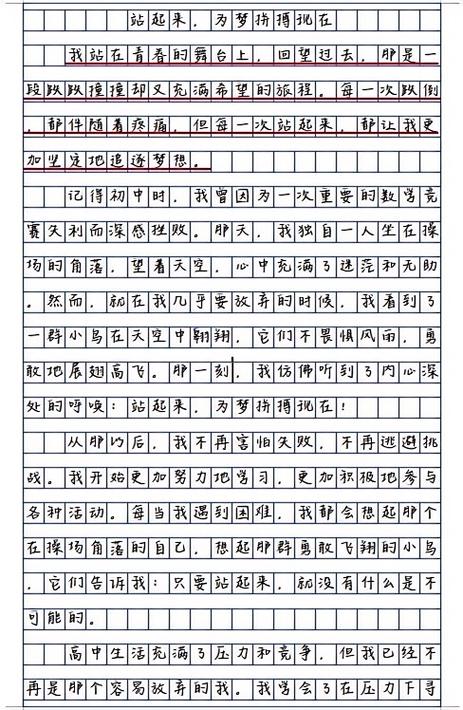 站起来，为梦拼搏现在
我站在青春的舞台上，回望过去，那是一
段跌跌撞撞却又充满希望的旅程。每一次跌倒
，都伴随着疼痛，但每一次站起来，都让我更
加坚定地追逐梦想。
记得初中时，我曾因为一次重要的数学竞
赛失利而深感挫败。那天，我独自一人坐在操
场的角落，望着天空，心中充满了迷茫和无助
。然而，就在我几乎要放弃的时候，我看到了
一群小鸟在天空中翱翔，它们不畏惧风雨，勇
敢地展翅高飞。那一刻，我仿佛听到了内心深
处的呼唤：站起来，为梦拼搏现在！
从那以后，我不再害怕失败，不再逃避挑
战。我开始更加努力地学习，更加积极地参与
各种活动。每当我遇到困难，我都会想起那个
在操场角落的自己，想起那群勇敢飞翔的小鸟
，它们告诉我：只要站起来，就没有什么是不
可能的。
高中生活充满了压力和竞争，但我已经不
再是那个容易放弃的我。我学会了在压力下寻